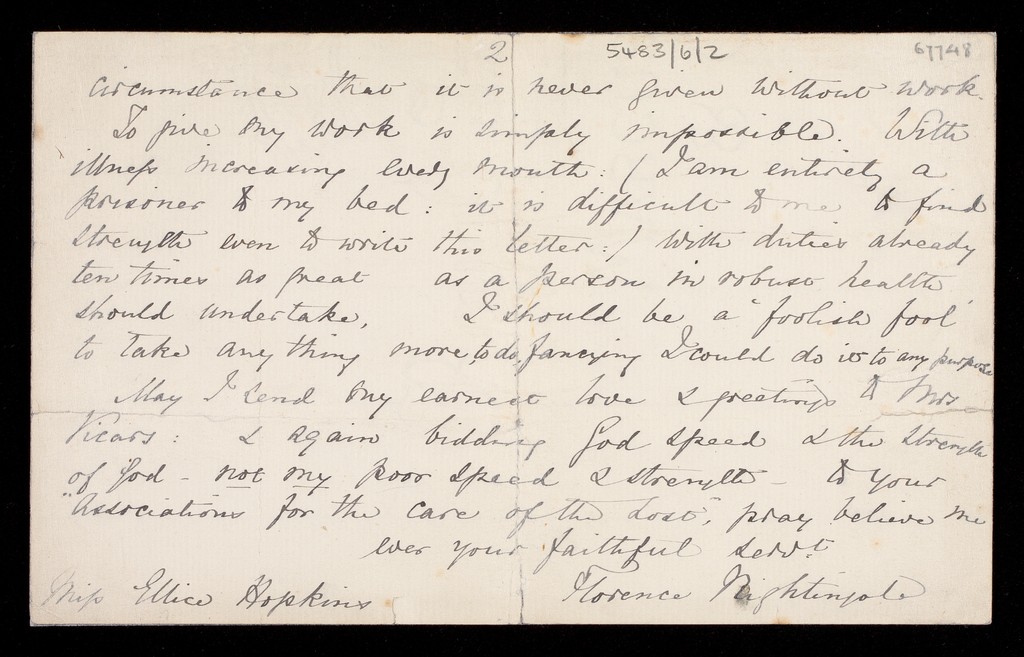 2 5483/6/2 67748
circumstance that it is never given without work.
To give my work is simply impossible. With
illness increasing every month: (I am entirely a
prisoner to my bed: it is difficult to me to find
strength even to write this letter:) With duties already
ten times as great as a person in robust health
should undertake, I should be a 'foolish fool'
to take anything more to do, fancying I could do it to any purpose
May I send my earnest love & greetings to Mrs
Vicars: & again bidding God speed & the strength
of God - not my poor speed & strength - to your
"Associations for the care of the Lost", pray believe me
ever your faithful servt
Florence Nightingale
Miss Ellice Hopkins